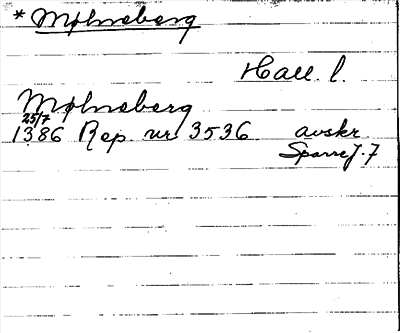 * Mølneberg
Hall. l.
Mølneberg
25/7
1386 Rep nr 3536 avskr.
Sparre J. 7